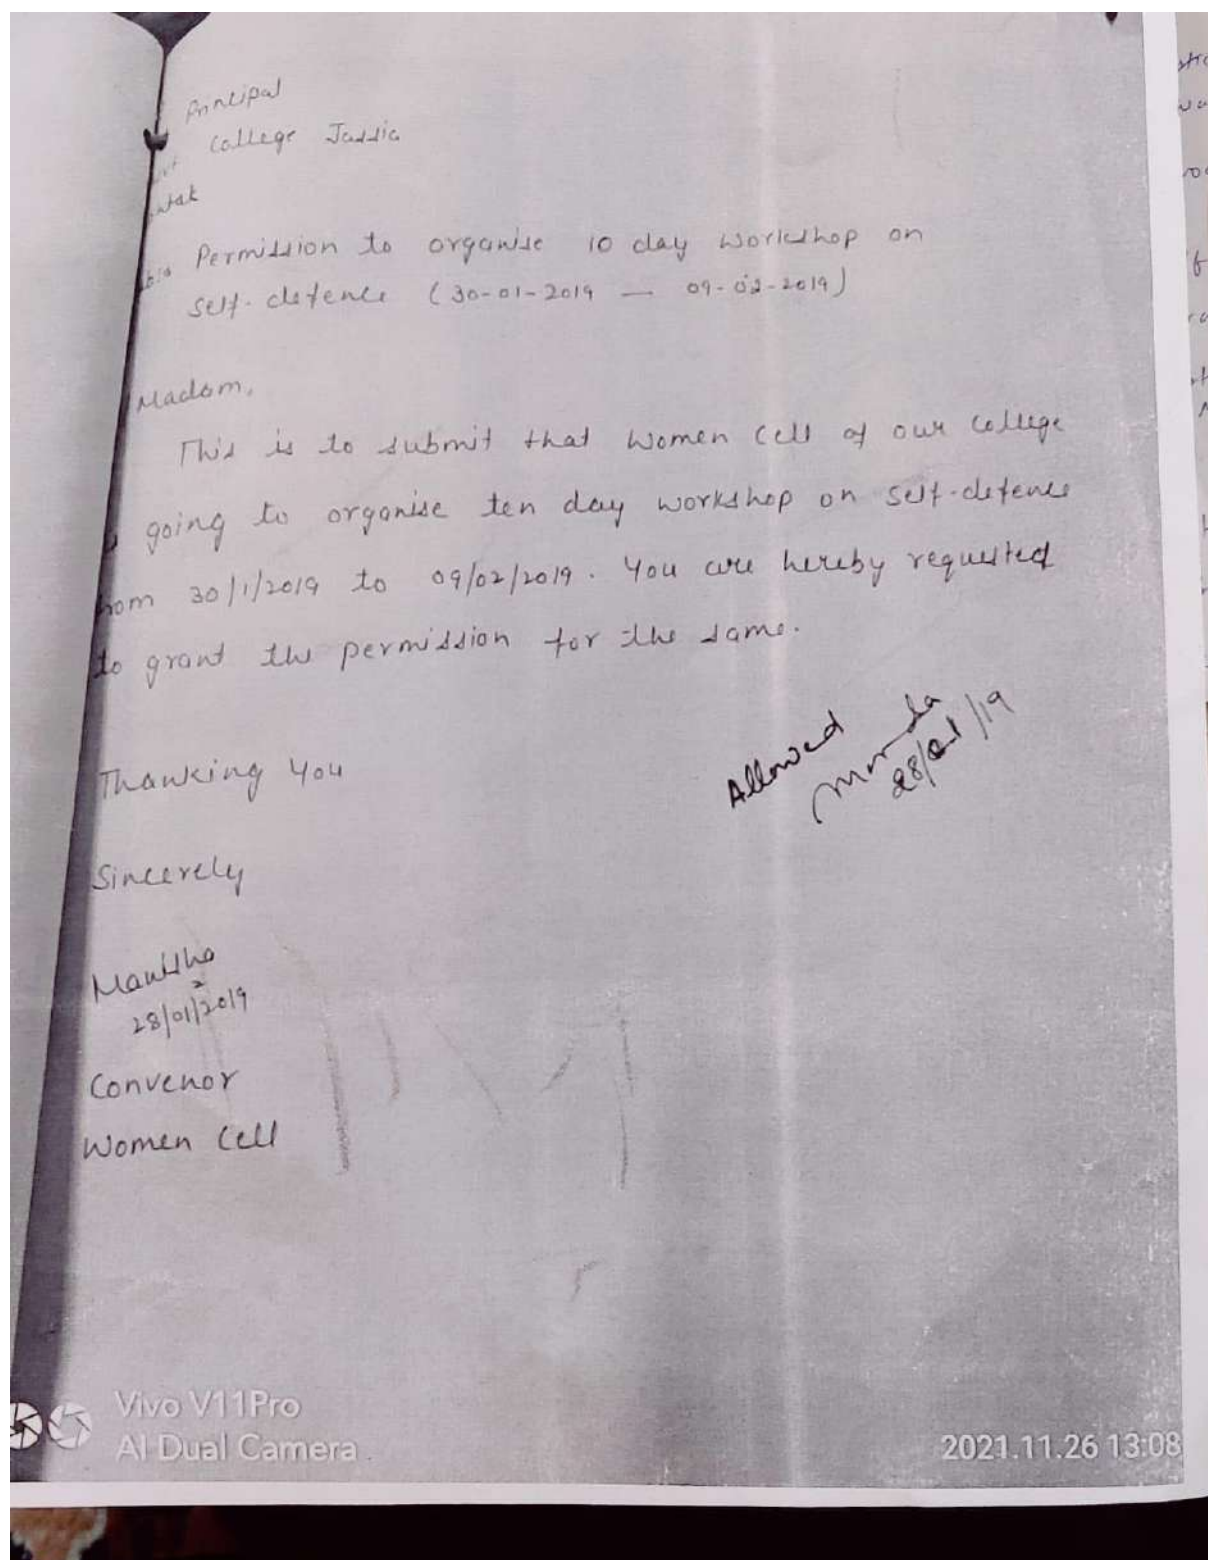 Principal
College Jassia
Permission to organise 10 day workshop on
self-defence (30-01-2019 — 09-02-2019)
Madam,
This is to submit that Women Cell of our college
going to organise ten day workshop on self-defence
from 30/1/2019 to 09/02/2019. You are hereby requested
to grant the permission for the same.
Allowed
28/01/19
Thanking You
Sincerely
Manisha
28/01/2019
Convenor
Women Cell
Vivo V11Pro
AI Dual Camera
2021.11.26 13:08